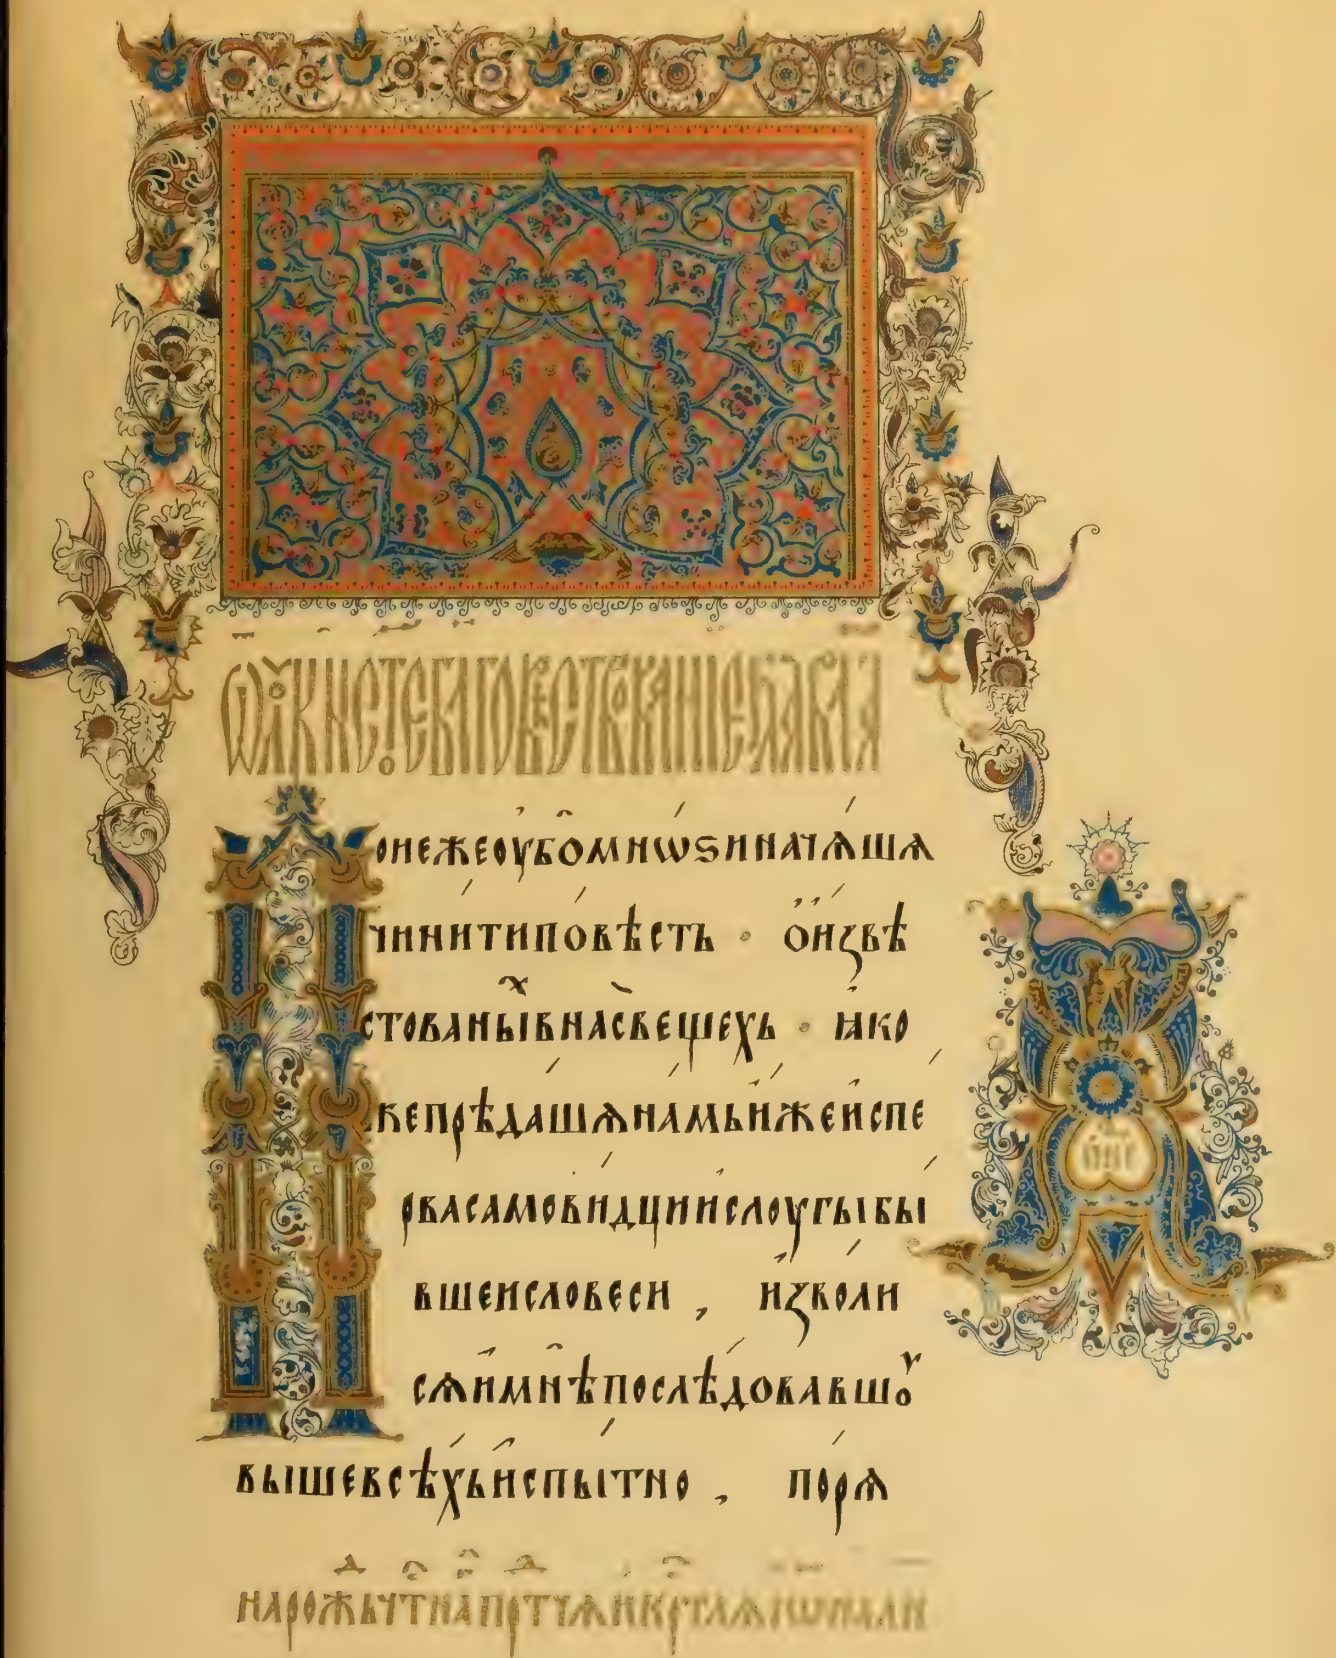 ѿ лꙋкы стое благовѣствованїе
Понежеоубомнѡѕиначѧшѧ
чинитиповѣсть · оизвѣ
стованыⷯвнасвещехь · ꙗко
жепрѣдашѧнамьижеиспе
рвасамовидциислоугыбы
вшеисловеси , изволи
сѧимнѣпослѣдовавшоᲂу
вышевсѣхьиспытно , порѧ